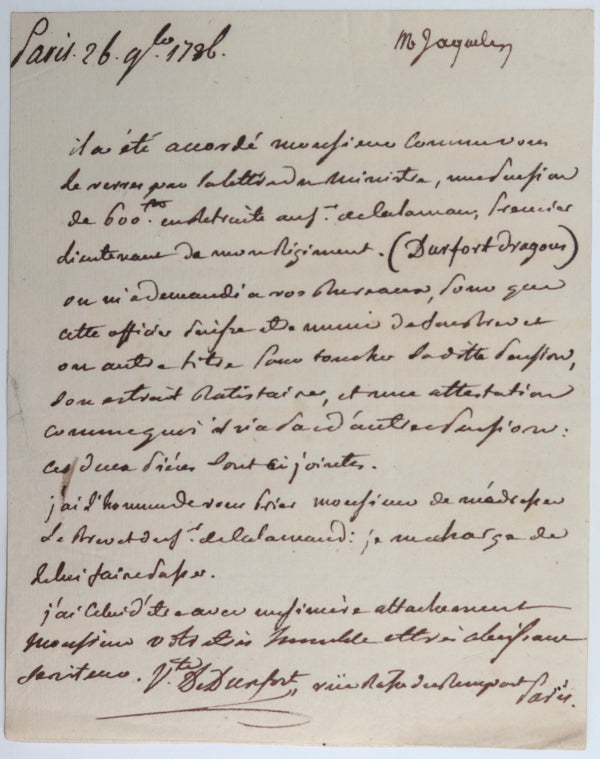 Paris. 26. 9bre 1786.
Mr Jaquelin
il a été accordé monsieur comme vous
le verres par la lettre du ministre, une pension
de 600.# en Retraite au Sr. de lalaman, premier
lieutenant de mon Régiment. (Durfort dragons)
on m'a demandé a vos Bureaux, pour que
cette officier puisse etre muni de son brevet
ou autre titre pour toucher la ditte pension,
son extrait Batistaire, et une attestation
comme quoi il n'a pas d'autre pension:
ces deux pieces sont ci jointes.
j'ai l'honneur de vous prier monsieur de m'adresser
le Brevet du Sr. de lalamand: je me charge de
le lui faire passer.
j'ai celui d'etre avec un sincère attachement
Monsieur votre très humble et très obeissant
serviteur. Vte De Durfort, rüe Basse du Rempart
Paris.